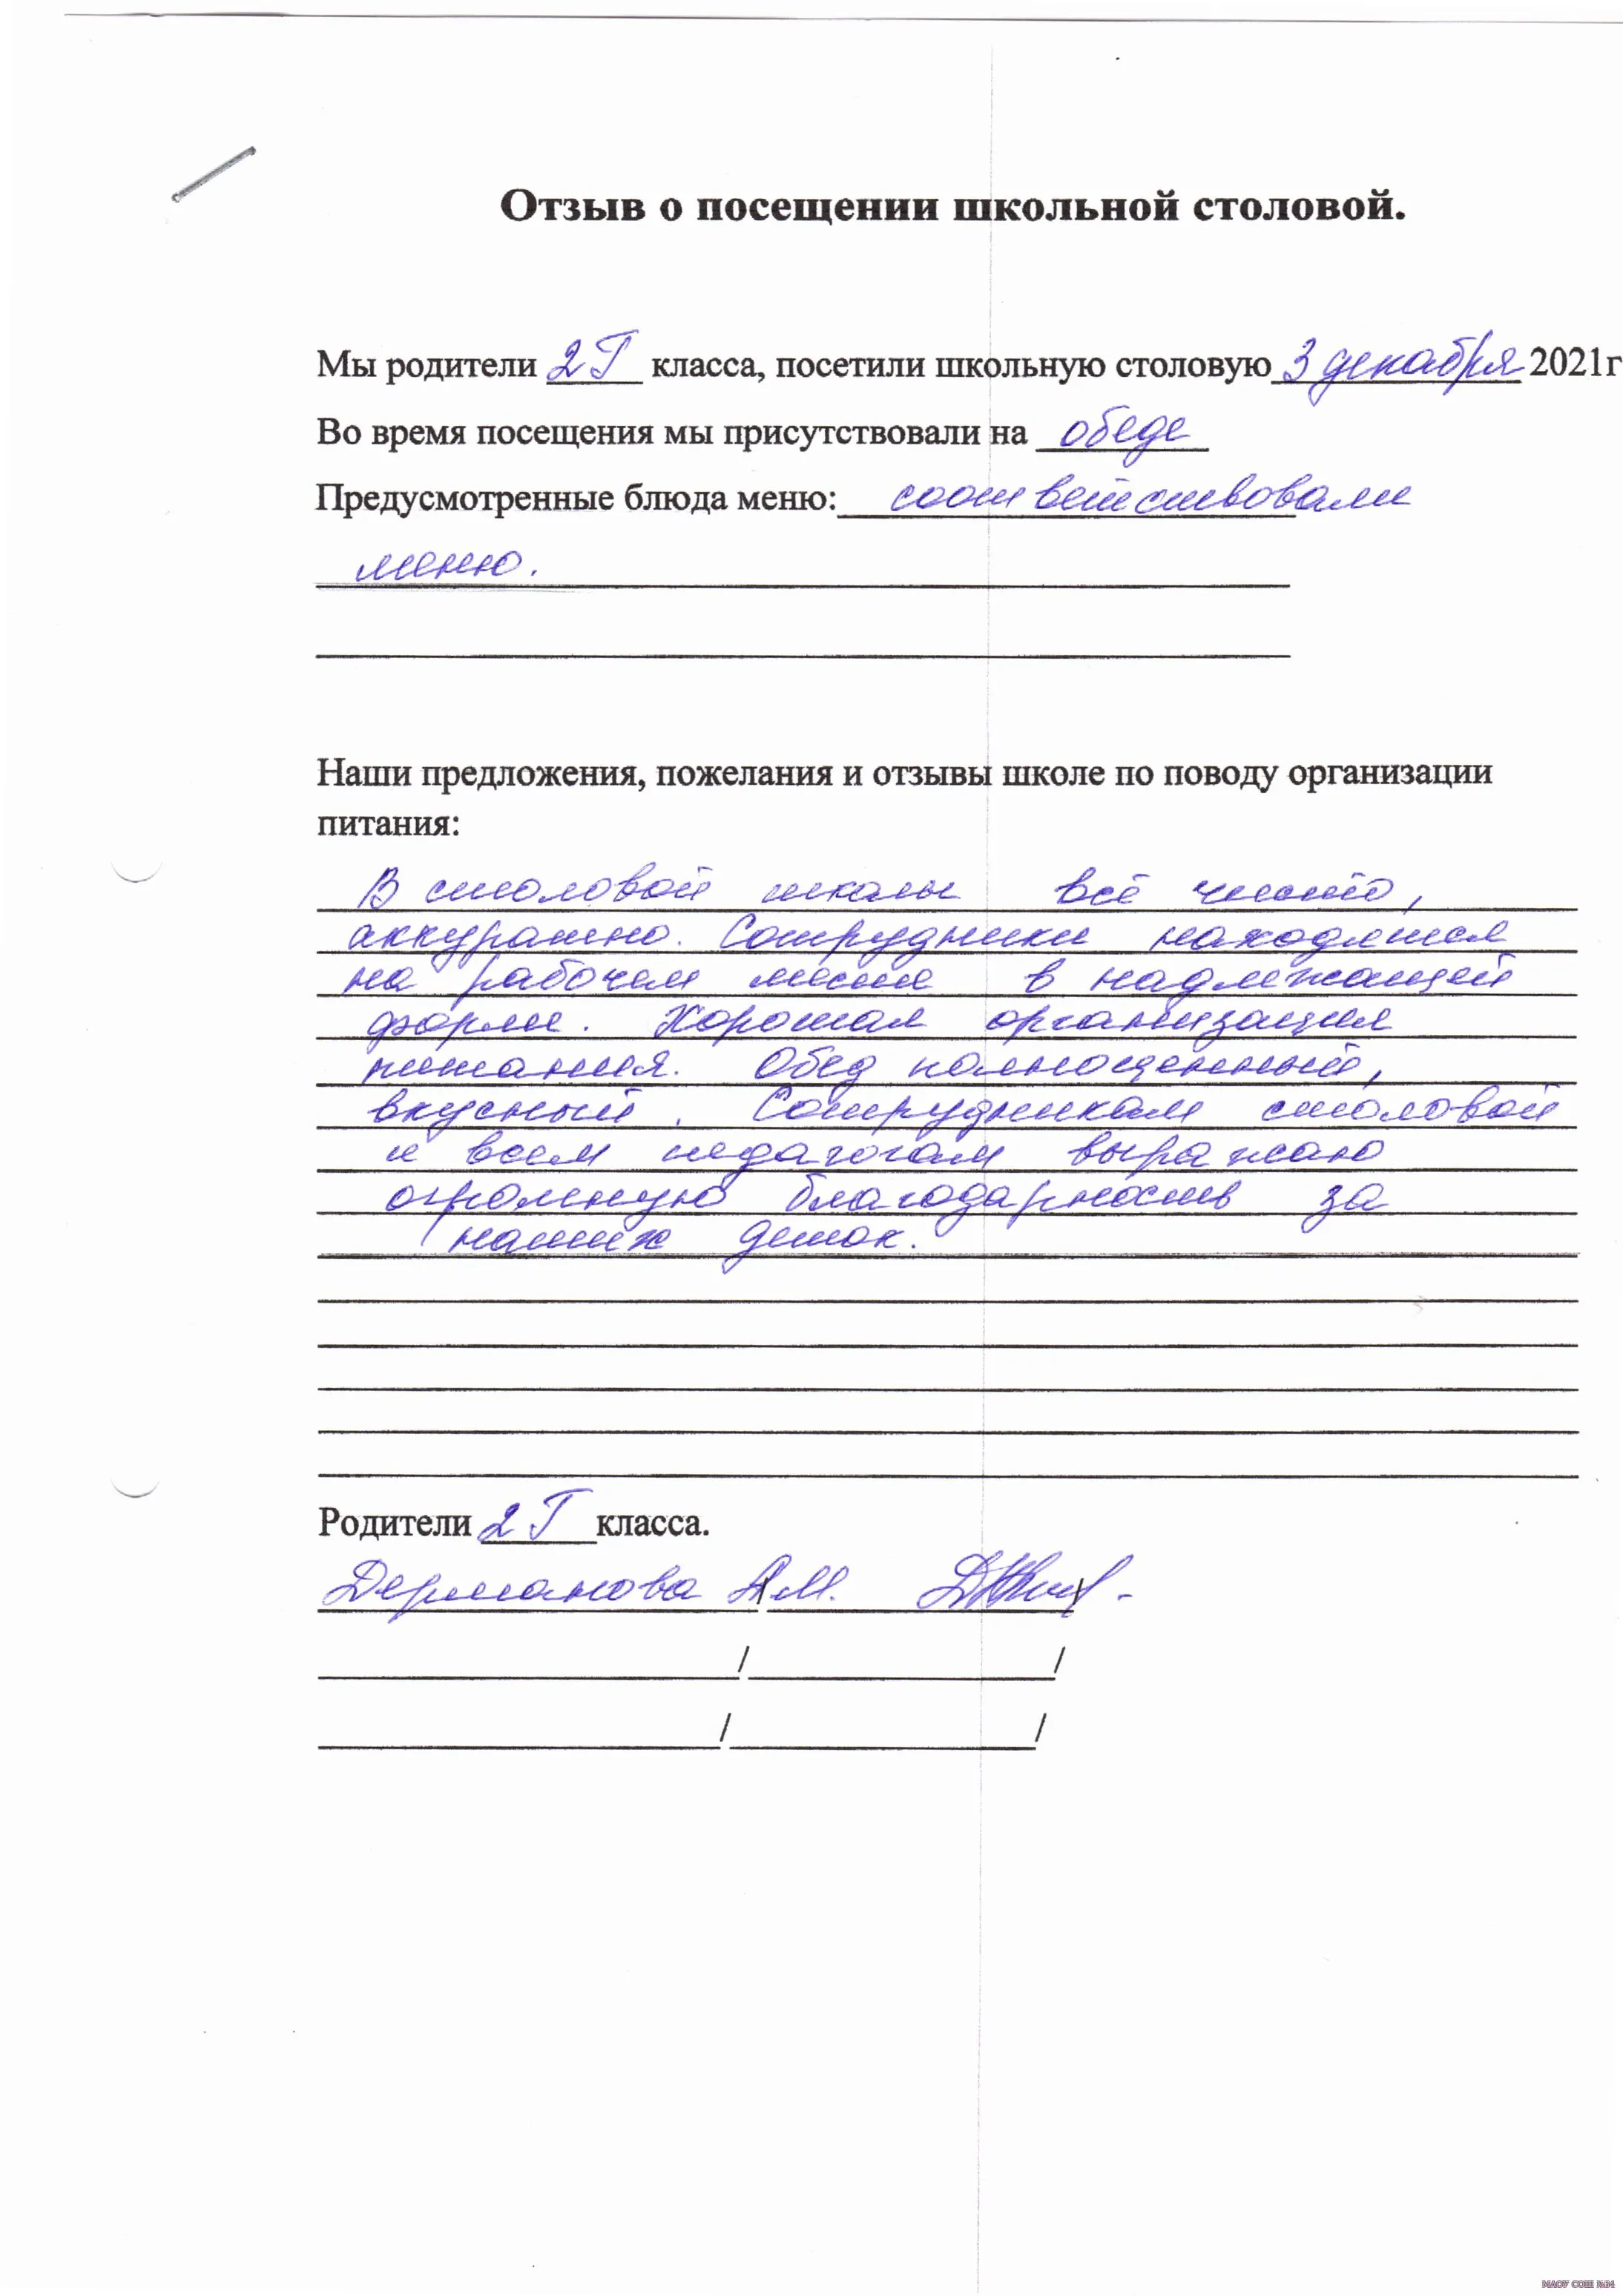 Отзыв о посещении школьной столовой.
Мы родители 2 Г класса, посетили школьную столовую 3 декабря 2021г
Во время посещения мы присутствовали на обеде
Предусмотренные блюда меню: соответствовали
меню.
Наши предложения, пожелания и отзывы школе по поводу организации
питания:
В столовой школы всё чисто,
аккуратно. Сотрудники находятся
на рабочем месте в надлежащей
форме. Хорошая организация
питания. Обед полноценный,
вкусный. Сотрудникам столовой
и всем педагогам выражаю
огромную благодарность за
наших деток.
Родители 2 Г класса.
Дерманова А.М.
/ /
/ /
МАОУ СОШ